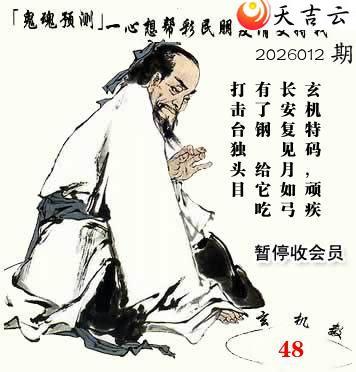 「鬼魂预测」一心想帮彩民朋友
天吉云
2026012 期
玄机特码，顽疾
长安复见月如弓
有了钢 给它吃
打击台独头目
暂停收会员
玄机
48